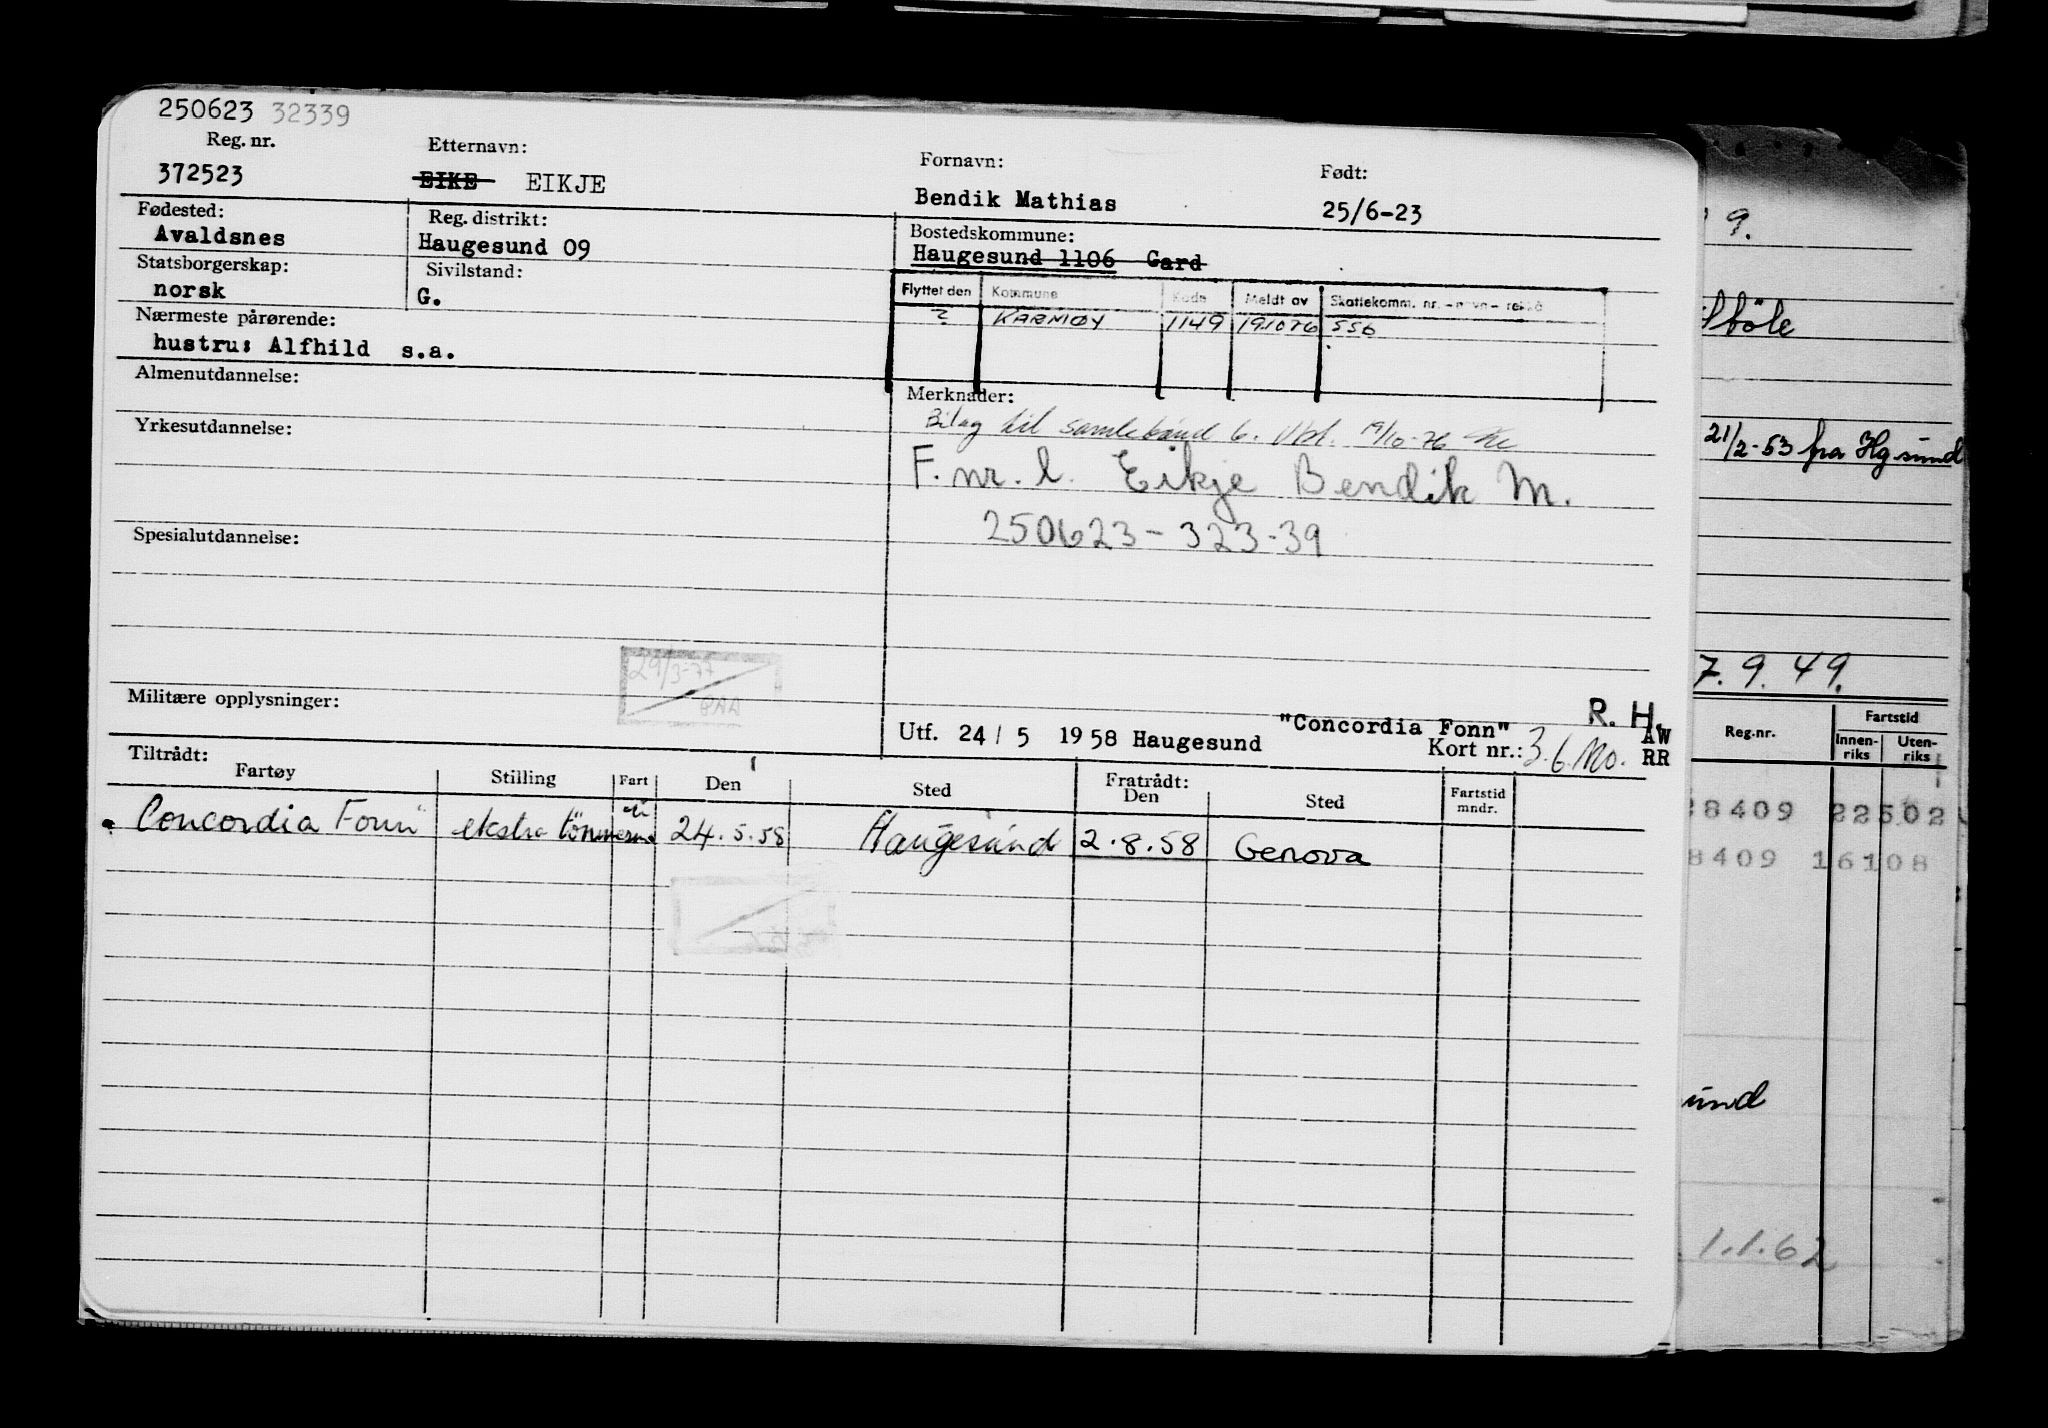 250623 32339
Reg. nr. Etternavn: Fornavn: Født:
372523 EIKE EIKJE Bendik Mathias 25/6-23
Fødested: Reg. distrikt: Bostedskommune:
Avaldsnes Haugesund 09 Haugesund 1106 Gard
Statsborgerskap: Sivilstand:
norsk G.
Flyttet den Kommune Kode Meldt av Skattekomm. nr. - navn -
? KARMØY 1149 191076 556
Nærmeste pårørende:
hustru: Alfhild s.a.
Almenutdannelse:
Merknader:
Bilag til samlebånd 6. 19/10-76
Yrkesutdannelse:
F. nr. l. Eikje Bendik M.
250623-323-39
Spesialutdannelse:
29/3-77
Militære opplysninger:
R. H.
Utf. 24/5 1958 Haugesund "Concordia Fonn" AW
Kort nr.: 3.6. Mo. RR
Tiltrådt: Fratrådt:
Fartøy Stilling Fart Den Sted Den Sted Fartstid mndr.
Concordia Fonn ekstra tömmerm. 24.5.58 Haugesund 2.8.58 Genova
9.
21/2-53 fra Hgsund
7.9.49.
Reg.nr. Fartstid
Innenriks Utenriks
8409 22502
8409 16108
1.1.62